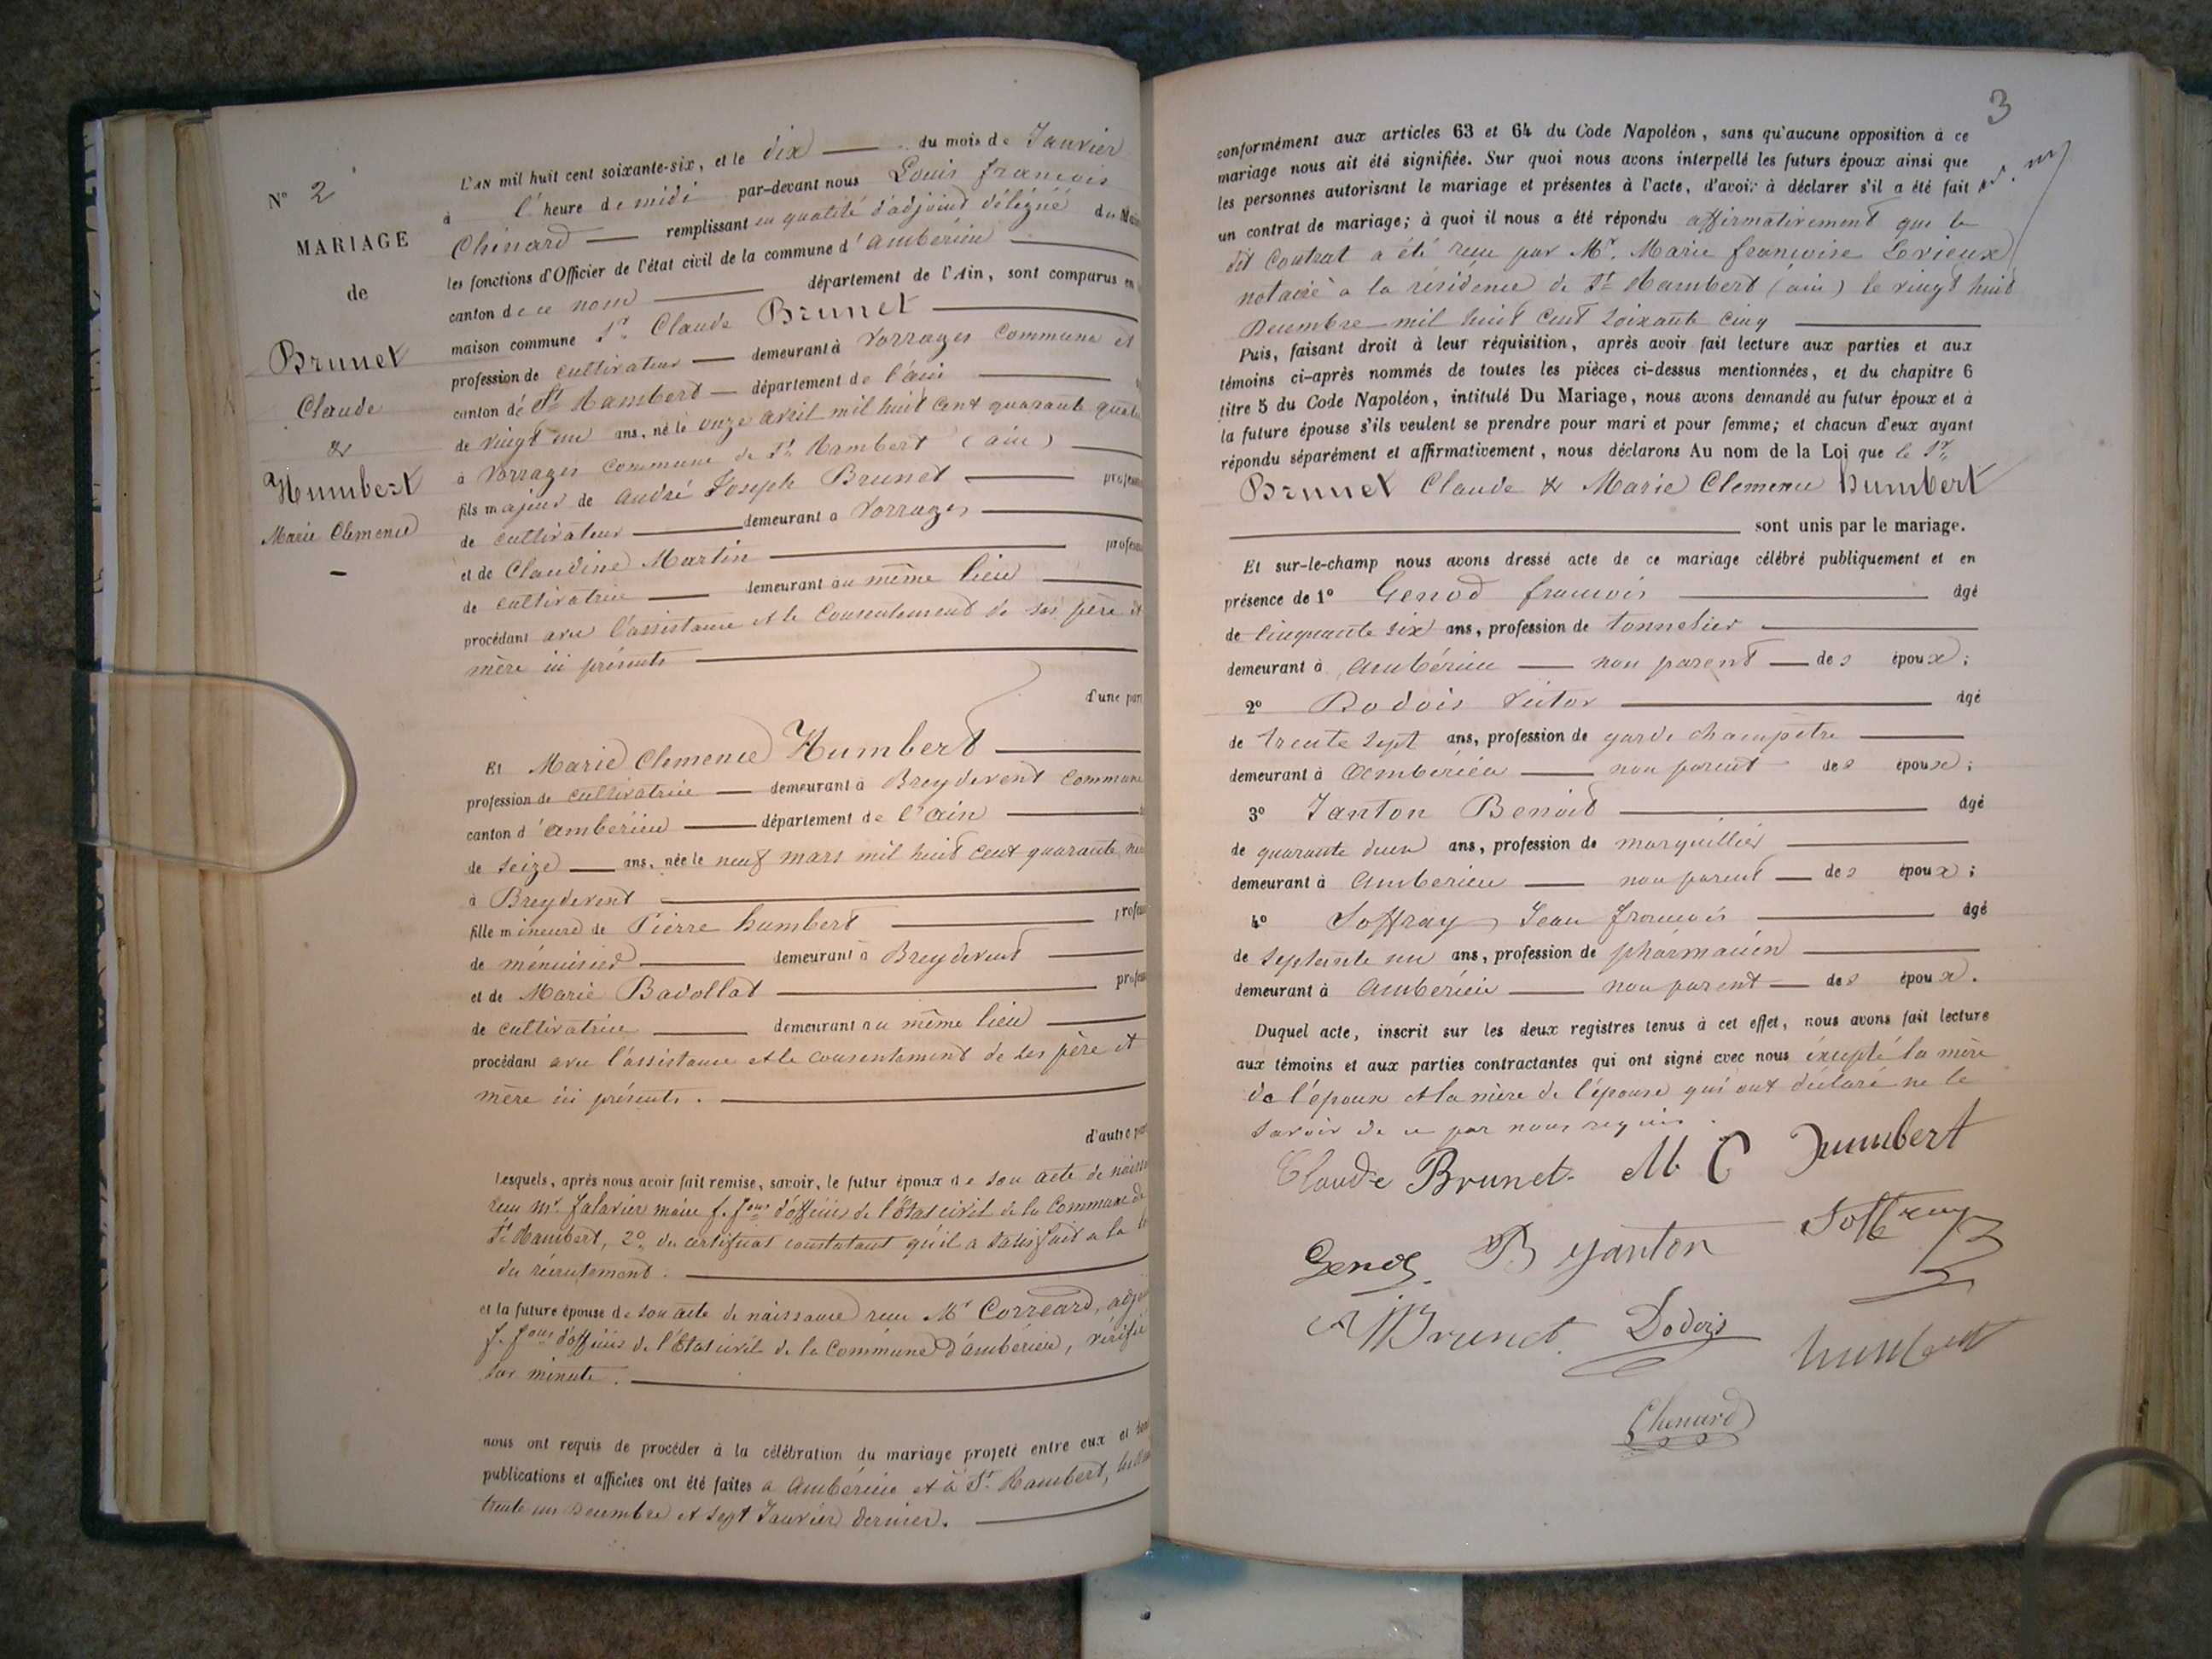 N° 2
MARIAGE
de
Brunet
Claude
&
Humbert
Marie Clemence
L'AN mil huit cent soixante-six, et le dix du mois de Janvier
à l'heure de midi par-devant nous Louis francois
Chénard remplissant en qualité d'adjoint délégué du Maire
les fonctions d'Officier de l'état civil de la commune d'ambérieu
canton de ce nom département de l'Ain, sont comparus en
maison commune Sr Claude Brunet
profession de cultivateur demeurant à Vorrages commune et
canton de St Rambert département de l'ain
de vingt un ans, né le onze avril mil huit cent quarante quatre
à Vorrages commune de St Rambert (ain)
fils majeur de andré Joseph Brunet
de cultivateur demeurant à Vorrages
et de Claudine Martin
de cultivatrice demeurant au même lieu
procédant avec l'assistance et le consentement de ses père et
mère ici présents
d'une part
Et Marie Clemence Humbert
profession de cultivatrice demeurant à Breydevent commune
canton d'ambérieu département de l'ain
de seize ans, née le neuf mars mil huit cent quarante neuf
à Breydevent
fille mineure de Pierre humbert
de ménuisier demeurant à Breydevent
et de Marie Badollat
de cultivatrice demeurant au même lieu
procédant avec l'assistance et le consentement de ses père et
mère ici présents.
d'autre part
Lesquels, après nous avoir fait remise, savoir, le futur époux de son acte de
recu Mr falavier maire f. fons d'officier de l'État civil de la Commune de
St Rambert, 2° du certificat constatant qu'il a satisfait a la loi
du récrutement.
et la future épouse de son acte de naissance recu Mr Corréard,
f. fons d'officier de l'État civil de la Commune d'ambérieu, vérifié
sur minute.
nous ont requis de procéder à la célébration du mariage projeté entre eux et dont
publications et affiches ont été faites a ambérieu et à St Rambert,
trente un Décembre et sept Janvier dernier.
3
conformément aux articles 63 et 64 du Code Napoléon, sans qu'aucune opposition à ce
mariage nous ait été signifiée. Sur quoi nous avons interpellé les futurs époux ainsi que
les personnes autorisant le mariage et présentes à l'acte, d'avoir à déclarer s'il a été fait
un contrat de mariage; à quoi il nous a été répondu affirmativement que le
dit Contrat a été recu par Mr. Marie francoise Levieux
notaire à la résidence de St Rambert (ain) le vingt huit
Decembre mil huit cent soixante cinq
Puis, faisant droit à leur réquisition, après avoir fait lecture aux parties et aux
témoins ci-après nommés de toutes les pièces ci-dessus mentionnées, et du chapitre 6
titre 5 du Code Napoléon, intitulé Du Mariage, nous avons demandé au futur époux et à
la future épouse s'ils veulent se prendre pour mari et pour femme; et chacun d'eux ayant
répondu séparément et affirmativement, nous déclarons Au nom de la Loi que le Sr
Brunet Claude & Marie Clemence humbert
sont unis par le mariage.
Et sur-le-champ nous avons dressé acte de ce mariage célébré publiquement et en
présence de 1° Genod francois âgé
de cinquante six ans, profession de tonnelier
demeurant à Ambérieu non parent des époux;
2° Dodois victor âgé
de trente sept ans, profession de garde champêtre
demeurant à ambérieu non parent des époux;
3° Janton Benoit âgé
de quarante deux ans, profession de marguillier
demeurant à Ambérieu non parent des époux;
4° Soffray Jean francois âgé
de septante un ans, profession de pharmacien
demeurant à Ambérieu non parent des époux.
Duquel acte, inscrit sur les deux registres tenus à cet effet, nous avons fait lecture
aux témoins et aux parties contractantes qui ont signé avec nous éxcepté la mère
de l'époux et la mère de l'épouse qui ont déclaré ne le
savoir de ce par nous requis.
Claude Brunet. M C humbert
Genod. B Janton Soffray
A J Brunet. Dodois humbert
Chenard